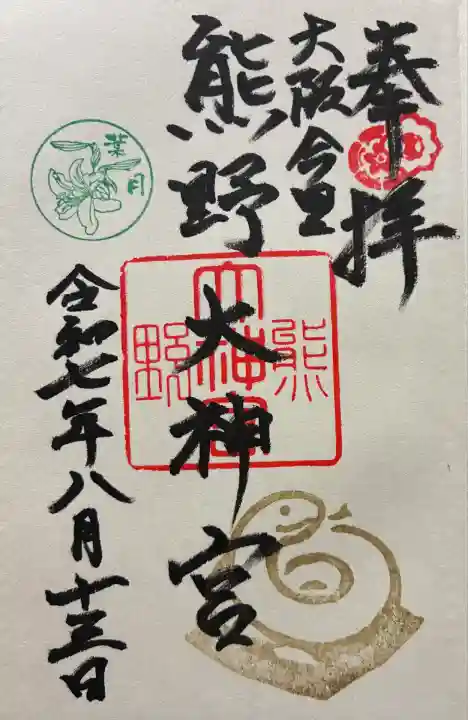 奉拝
大阪今里
熊野大神宮
熊
大神宮
野
葉月
令和七年八月十三日